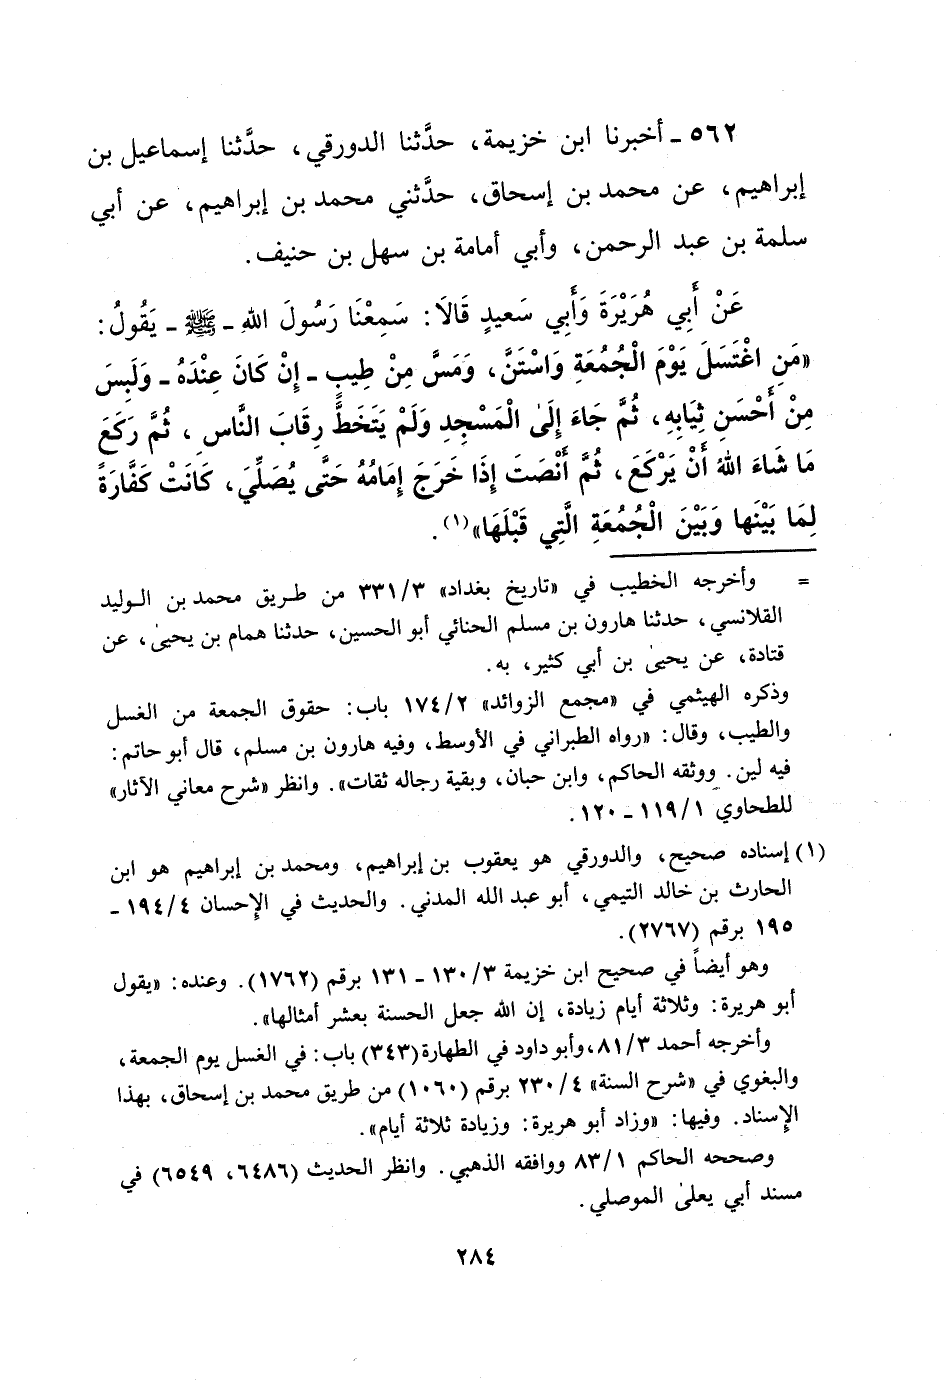 ٥٦٢ - أخبرنا ابن خزيمة، حدَّثنا الدورقي، حدَّثنا إسماعيل بن
إبراهيم، عن محمد بن إسحاق، حدَّثني محمد بن إبراهيم، عن أبي
سلمة بن عبد الرحمن، وأبي أمامة بن سهل بن حنيف.
عَنْ أَبِي هُرَيْرَةَ وَأَبِي سَعيدٍ قَالَا: سَمِعْنَا رَسُولَ اللهِ - ﷺ - يَقُولُ:
«مَنِ اغْتَسَلَ يَوْمَ الْجُمُعَةِ وَاسْتَنَّ، وَمَسَّ مِنْ طِيبٍ - إِنْ كَانَ عِنْدَهُ - وَلَبِسَ
مِنْ أَحْسَنِ ثِيَابِهِ، ثُمَّ جَاءَ إِلَىٰ الْمَسْجِدِ وَلَمْ يَتَخَطَّ رِقَابَ النَّاسِ، ثُمَّ رَكَعَ
مَا شَاءَ اللهُ أَنْ يَرْكَعَ، ثُمَّ أَنْصَتَ إِذَا خَرَجَ إِمَامُهُ حَتَّى يُصَلِّيَ، كَانَتْ كَفَّارَةً
لِمَا بَيْنَها وَبَيْنَ الْجُمُعَةِ الَّتِي قَبْلَهَا»(١).
= وأخرجه الخطيب في «تاريخ بغداد» ٣٣١/٣ من طريق محمد بن الوليد
القلانسي، حدثنا هارون بن مسلم الحنائي أبو الحسين، حدثنا همام بن يحيىٰ، عن
قتادة، عن يحيىٰ بن أبي كثير، به.
وذكره الهيثمي في «مجمع الزوائد» ١٧٤/٢ باب: حقوق الجمعة من الغسل
والطيب، وقال: «رواه الطبراني في الأوسط، وفيه هارون بن مسلم، قال أبو حاتم:
فيه لين. ووثقه الحاكم، وابن حبان، وبقية رجاله ثقات». وانظر «شرح معاني الآثار»
للطحاوي ١١٩/١ - ١٢٠.
(١) إسناده صحيح، والدورقي هو يعقوب بن إبراهيم، ومحمد بن إبراهيم هو ابن
الحارث بن خالد التيمي، أبو عبد الله المدني. والحديث في الإحسان ١٩٤/٤ -
١٩٥ برقم (٢٧٦٧).
وهو أيضاً في صحيح ابن خزيمة ١٣٠/٣ - ١٣١ برقم (١٧٦٢). وعنده: «يقول
أبو هريرة: وثلاثة أيام زيادة، إن الله جعل الحسنة بعشر أمثالها».
وأخرجه أحمد ٨١/٣، وأبو داود في الطهارة (٣٤٣) باب: في الغسل يوم الجمعة،
والبغوي في «شرح السنة» ٢٣٠/٤ برقم (١٠٦٠) من طريق محمد بن إسحاق، بهذا
الإسناد. وفيها: «وزاد أبو هريرة: وزيادة ثلاثة أيام».
وصححه الحاكم ٨٣/١ ووافقه الذهبي. وانظر الحديث (٦٤٨٦، ٦٥٤٩) في
مسند أبي يعلىٰ الموصلي.
٢٨٤